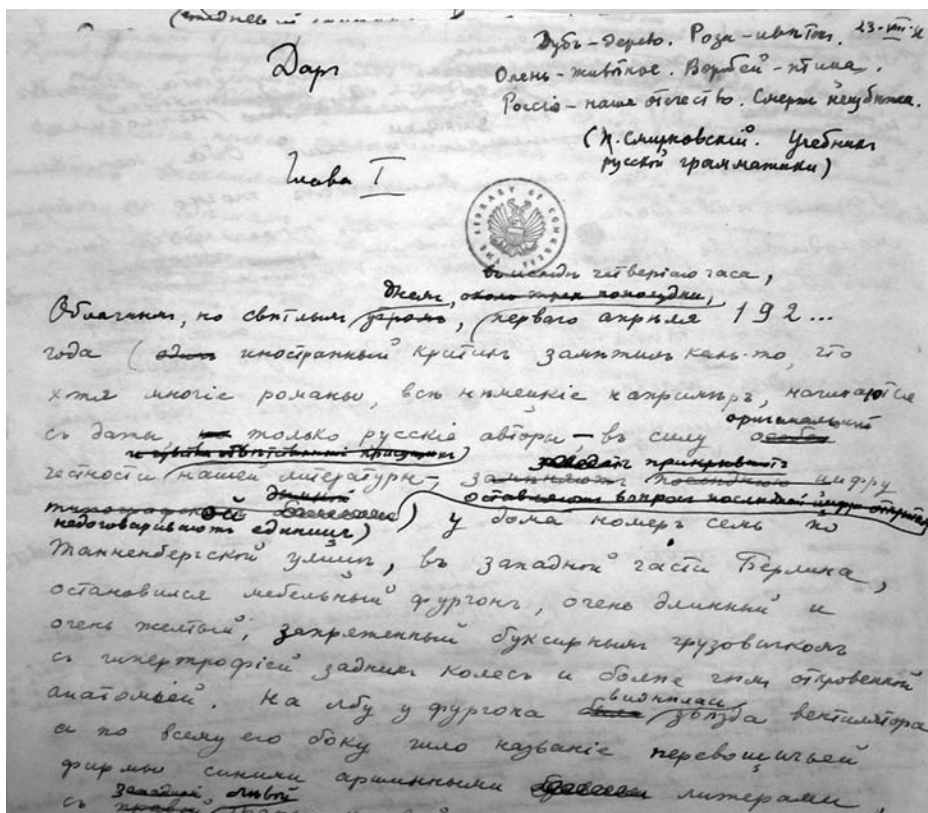 Даръ
Дубъ – дерево. Роза – цвѣтокъ.
Олень – животное. Воробей – птица.
Россія – наше отечество. Смерть неизбѣжна.
(П. Смирновскій. Учебникъ
русской грамматики)
Глава I
THE LIBRARY OF CONGRESS
въ исходѣ четвертаго часа,
днемъ, около трехъ пополудни,
Облачнымъ, но свѣтлымъ утромъ, перваго апрѣля 192...
года (одинъ иностранный критикъ замѣтилъ какъ-то, что
хотя многіе романы, всѣ нѣмецкіе напримѣръ, начинаются
съ даты, только русскіе авторы – въ силу
оригинальной
честности нашей литературы –
недоговариваютъ единицъ) у дома номеръ семь по
Танненбергской улицѣ, въ западной части Берлина,
остановился мебельный фургонъ, очень длинный и
очень желтый, запряженный буксирнымъ грузовикомъ
съ гипертрофіей заднихъ колесъ и болѣе чѣмъ откровенной
анатоміей. На лбу у фургона
виднѣлась
звѣзда вентилятора
а по всему его боку шло названіе перевозчичьей
фирмы синими аршинными литерами,